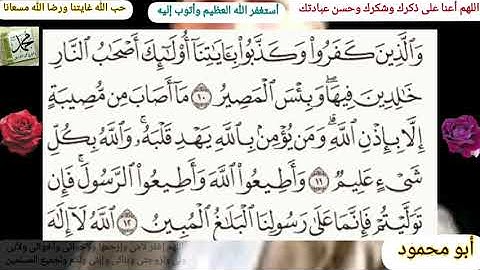 حب الله غايتنا ورضا الله مسعانا
أستغفر الله العظيم وأتوب إليه
اللهم أعنا على ذكرك وشكرك وحسن عبادتك
محمد
وَالَّذِينَ كَفَرُوا وَكَذَّبُوا بِآيَاتِنَا أُولَٰئِكَ أَصْحَابُ النَّارِ
خَالِدِينَ فِيهَا ۖ وَبِئْسَ الْمَصِيرُ ١٠ مَا أَصَابَ مِن مُّصِيبَةٍ
إِلَّا بِإِذْنِ اللَّهِ ۗ وَمَن يُؤْمِن بِاللَّهِ يَهْدِ قَلْبَهُ ۚ وَاللَّهُ بِكُلِّ
شَيْءٍ عَلِيمٌ ١١ وَأَطِيعُوا اللَّهَ وَأَطِيعُوا الرَّسُولَ ۚ فَإِن
تَوَلَّيْتُمْ فَإِنَّمَا عَلَىٰ رَسُولِنَا الْبَلَاغُ الْمُبِينُ ١٢ اللَّهُ لَا إِلَٰهَ
أبو محمود